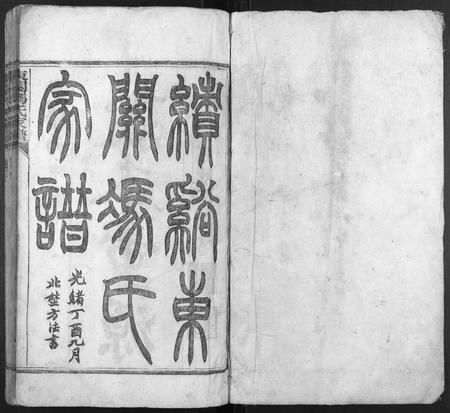 績谿東
關馮氏
家譜
光緒丁酉九月
北埜方法書